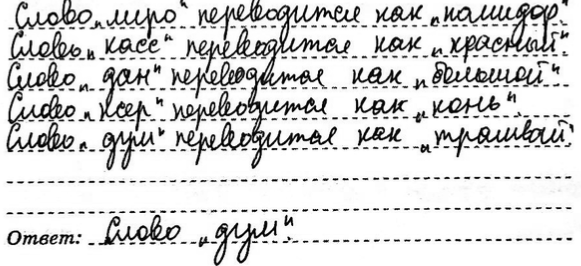 Слово „миро“ переводится как „помидор“.
Слово „касс“ переводится как „красный“.
Слово „дан“ переводится как „большой“
Слово „ксер“ переводится как „конь“.
Слово „дум“ переводится как „трамвай“.
Ответ: Слово „дум“.